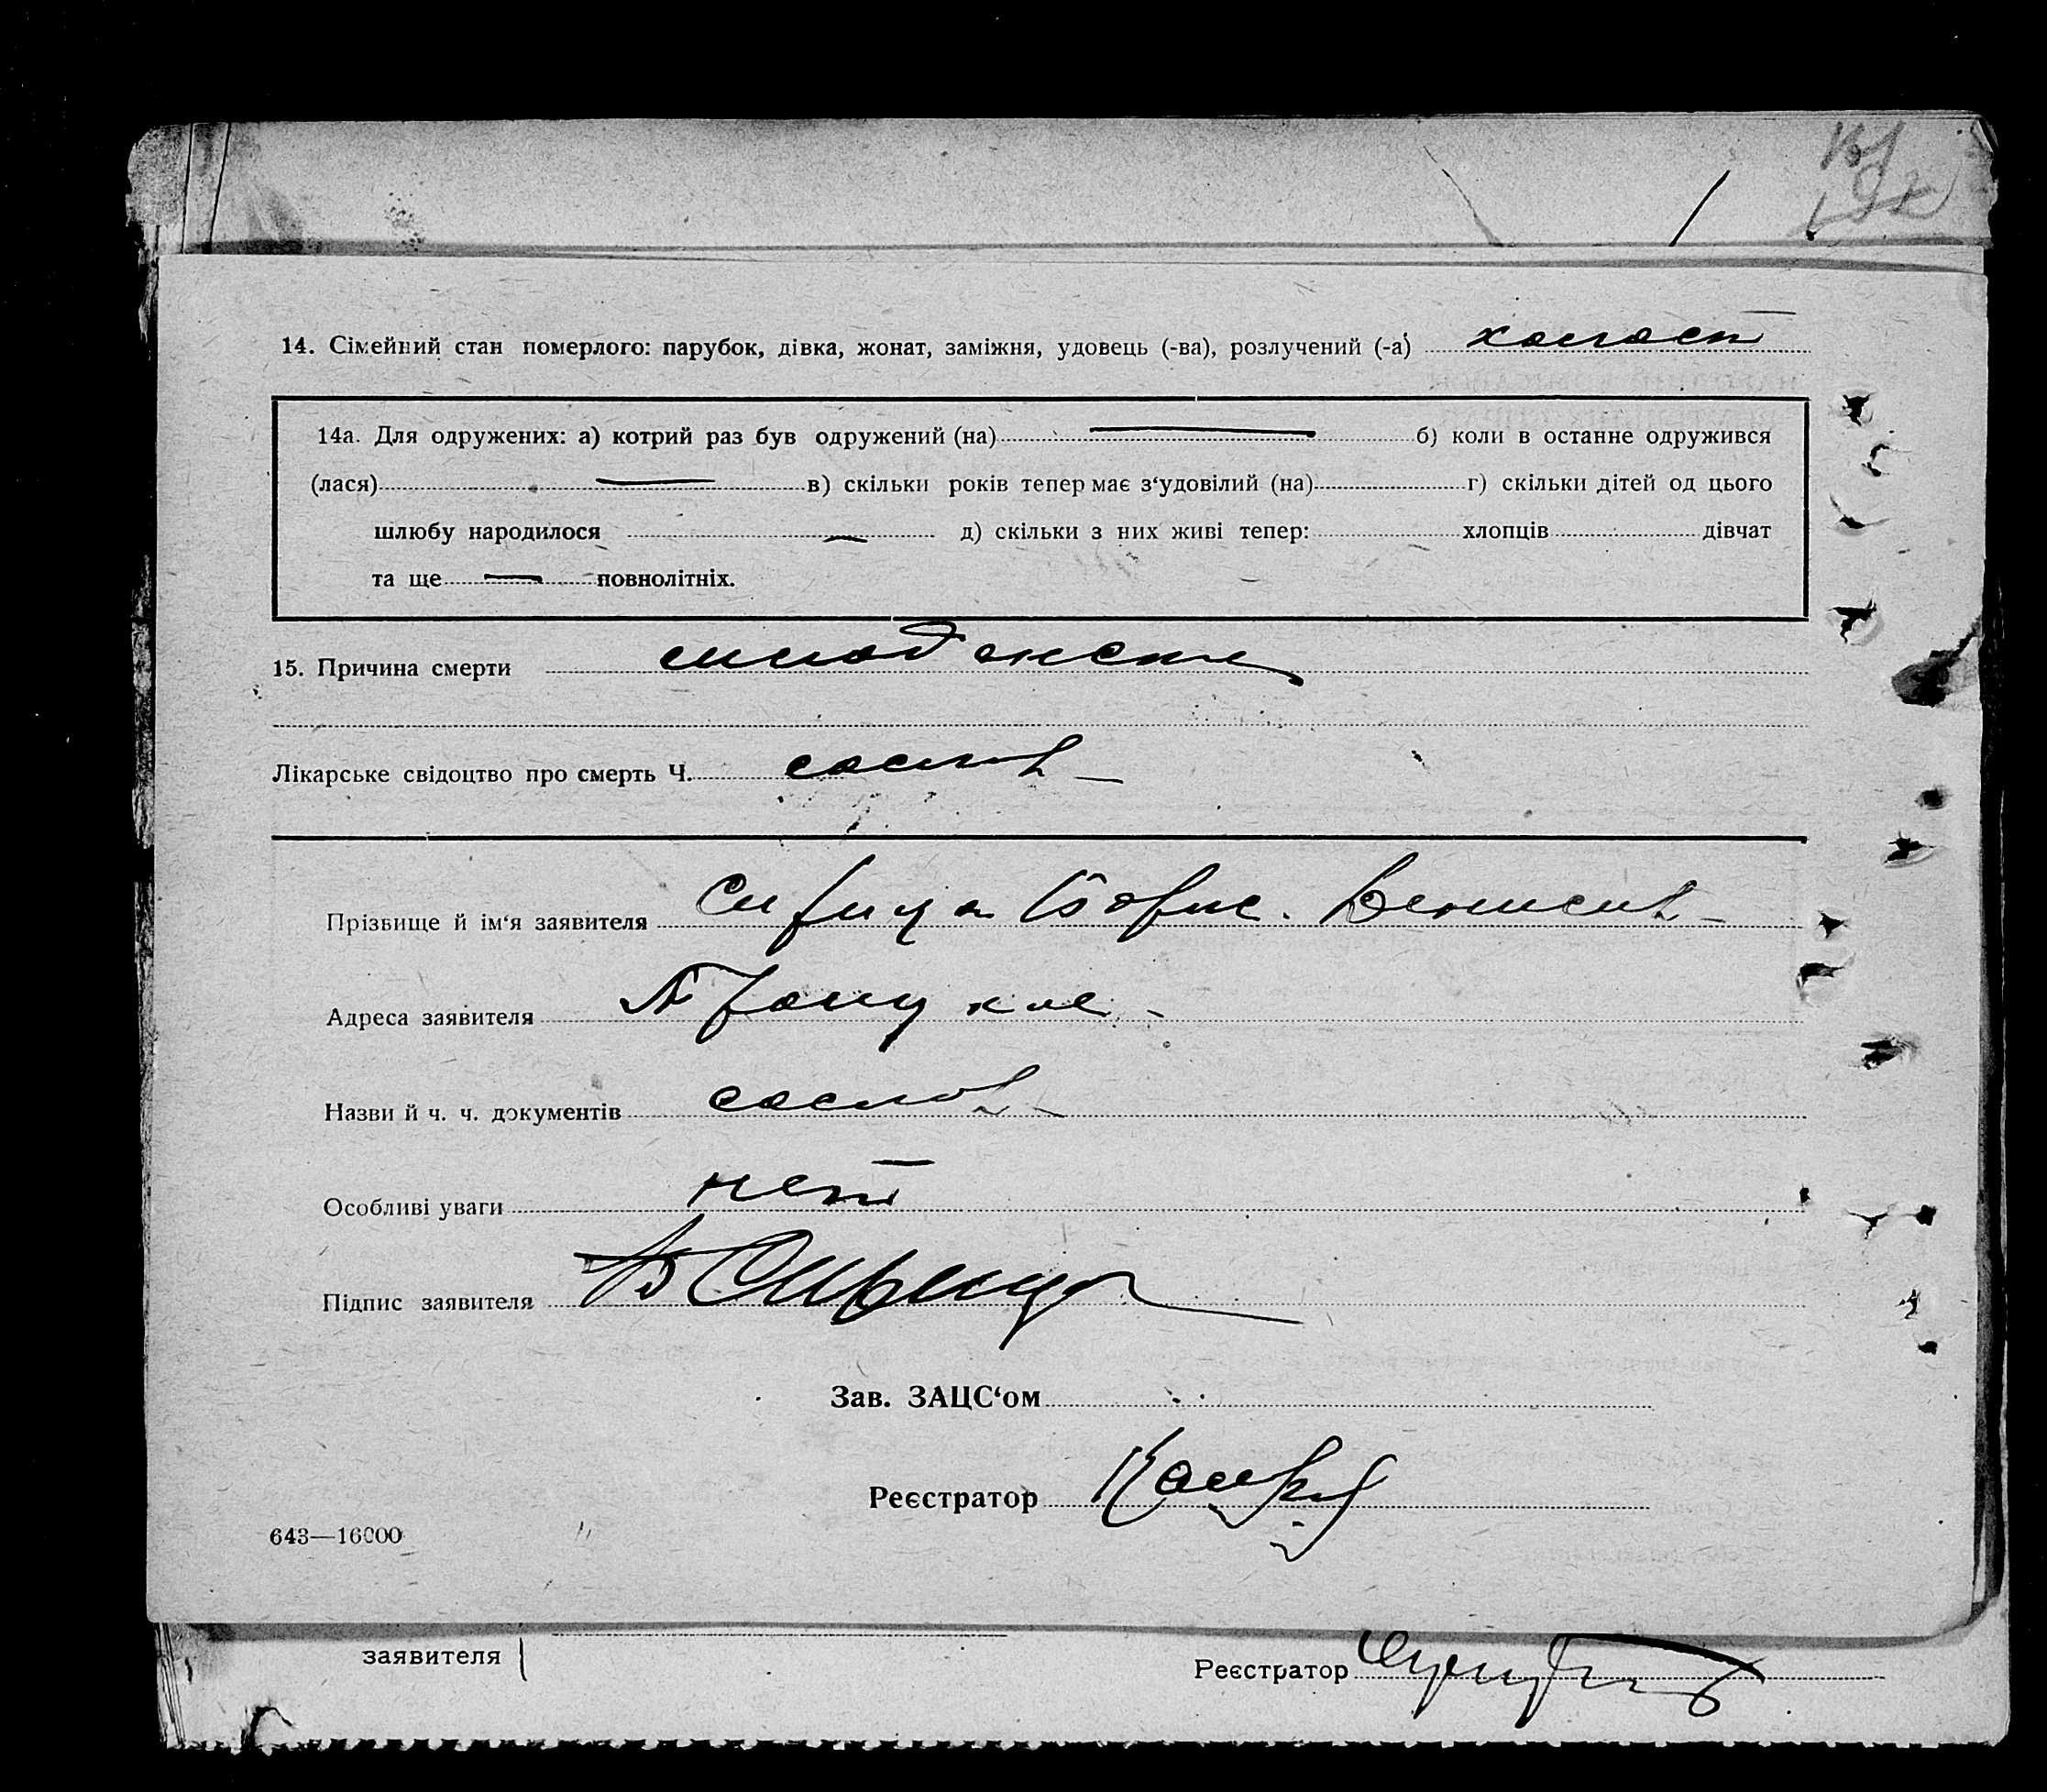 14. Сімейний стан померлого: парубок, дівка, жонат, заміжня, удовець (-ва), розлучений (-а) холост
14а. Для одружених: а) котрий раз був одружений (на) — б) коли в останне одружився
(лася) — в) скільки років тепер має з‘удовілий (на) г) скільки дітей од цього
шлюбу народилося — д) скільки з них живі тепер: хлопців дівчат
та ще — повнолітніх.
15. Причина смерти
Лікарське свідоцтво про смерть Ч. со слов
Прізвище й ім‘я заявителя Сирица Борис. Денисов
Адреса заявителя
Назви й ч. ч. документів со слов
Особливі уваги нет
Підпис заявителя Б Сирица
Зав. ЗАЦС‘ом
Реєстратор
643—16000
заявителя
Реєстратор